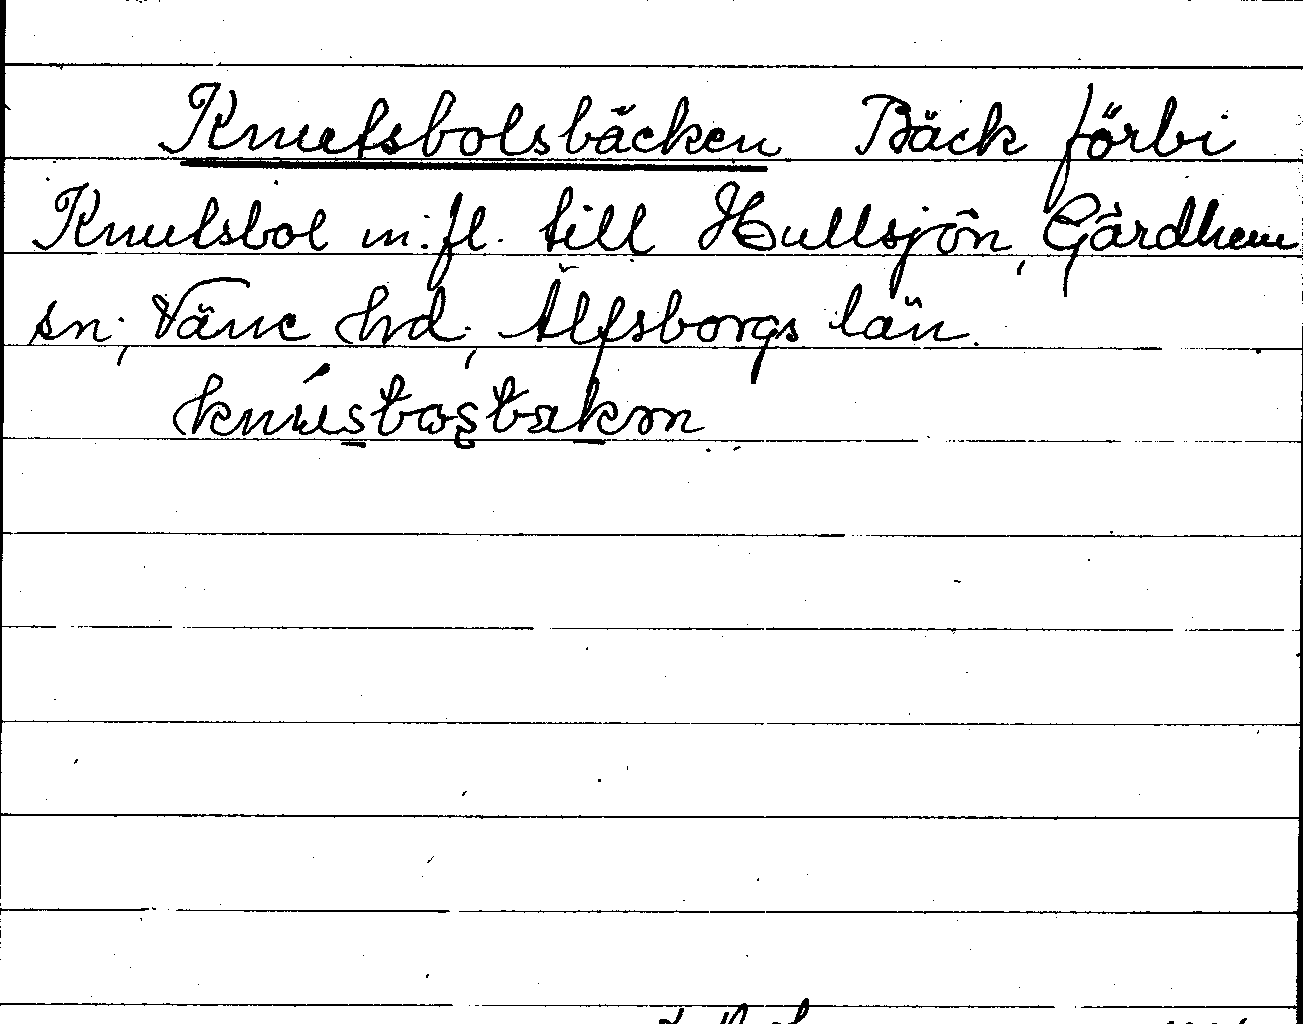 Knutsbolsbäcken Bäck förbi
Knutsbol m.fl. till Hullsjön, Gärdhem
sn; Väne hd; Älfsborgs län.